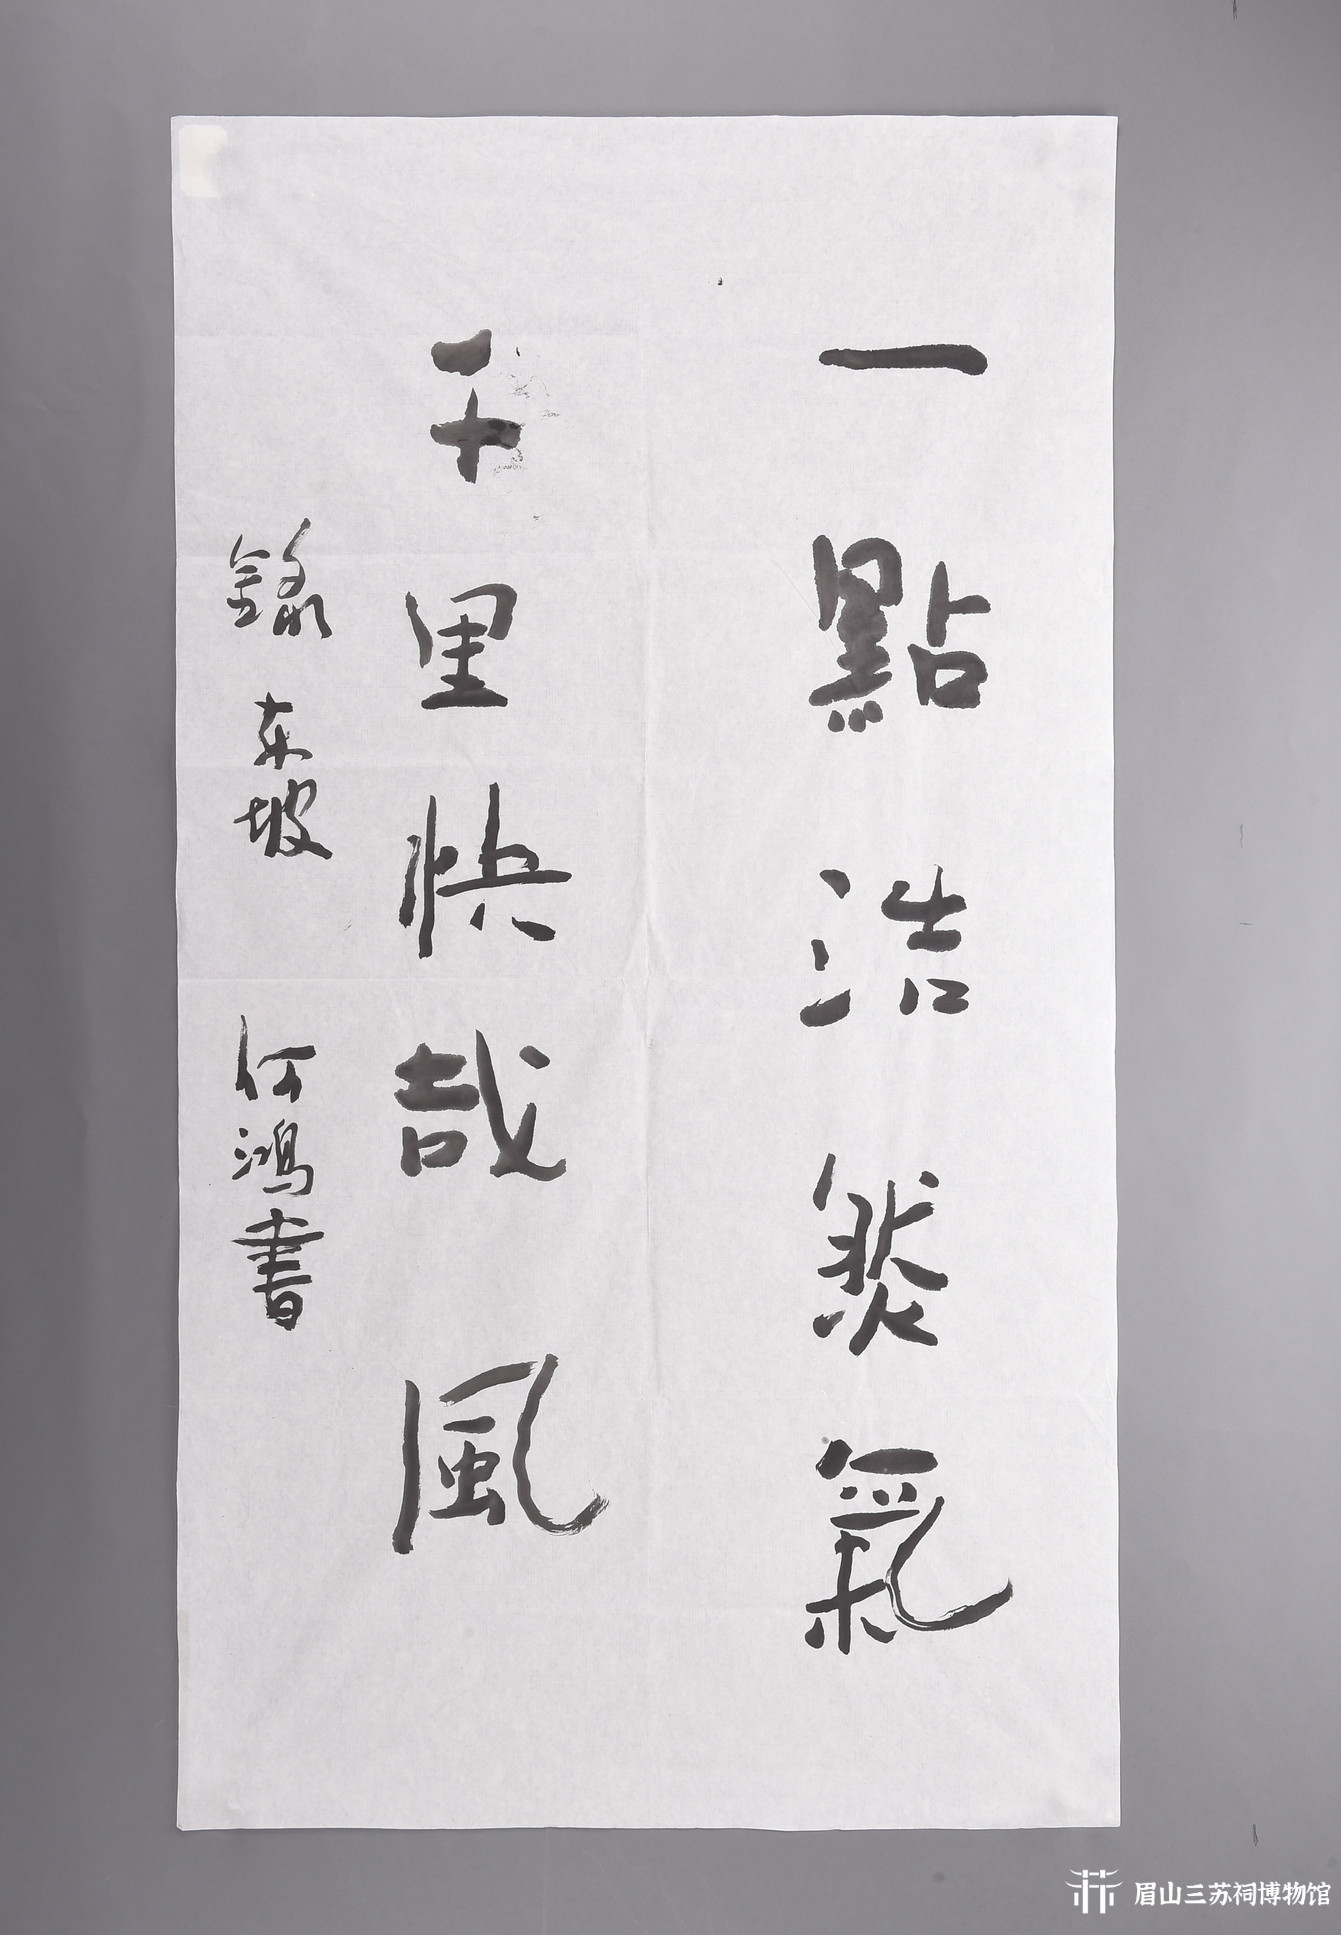 一點浩然氣
千里快哉風
錄東坡 何鴻書
眉山三苏祠博物馆